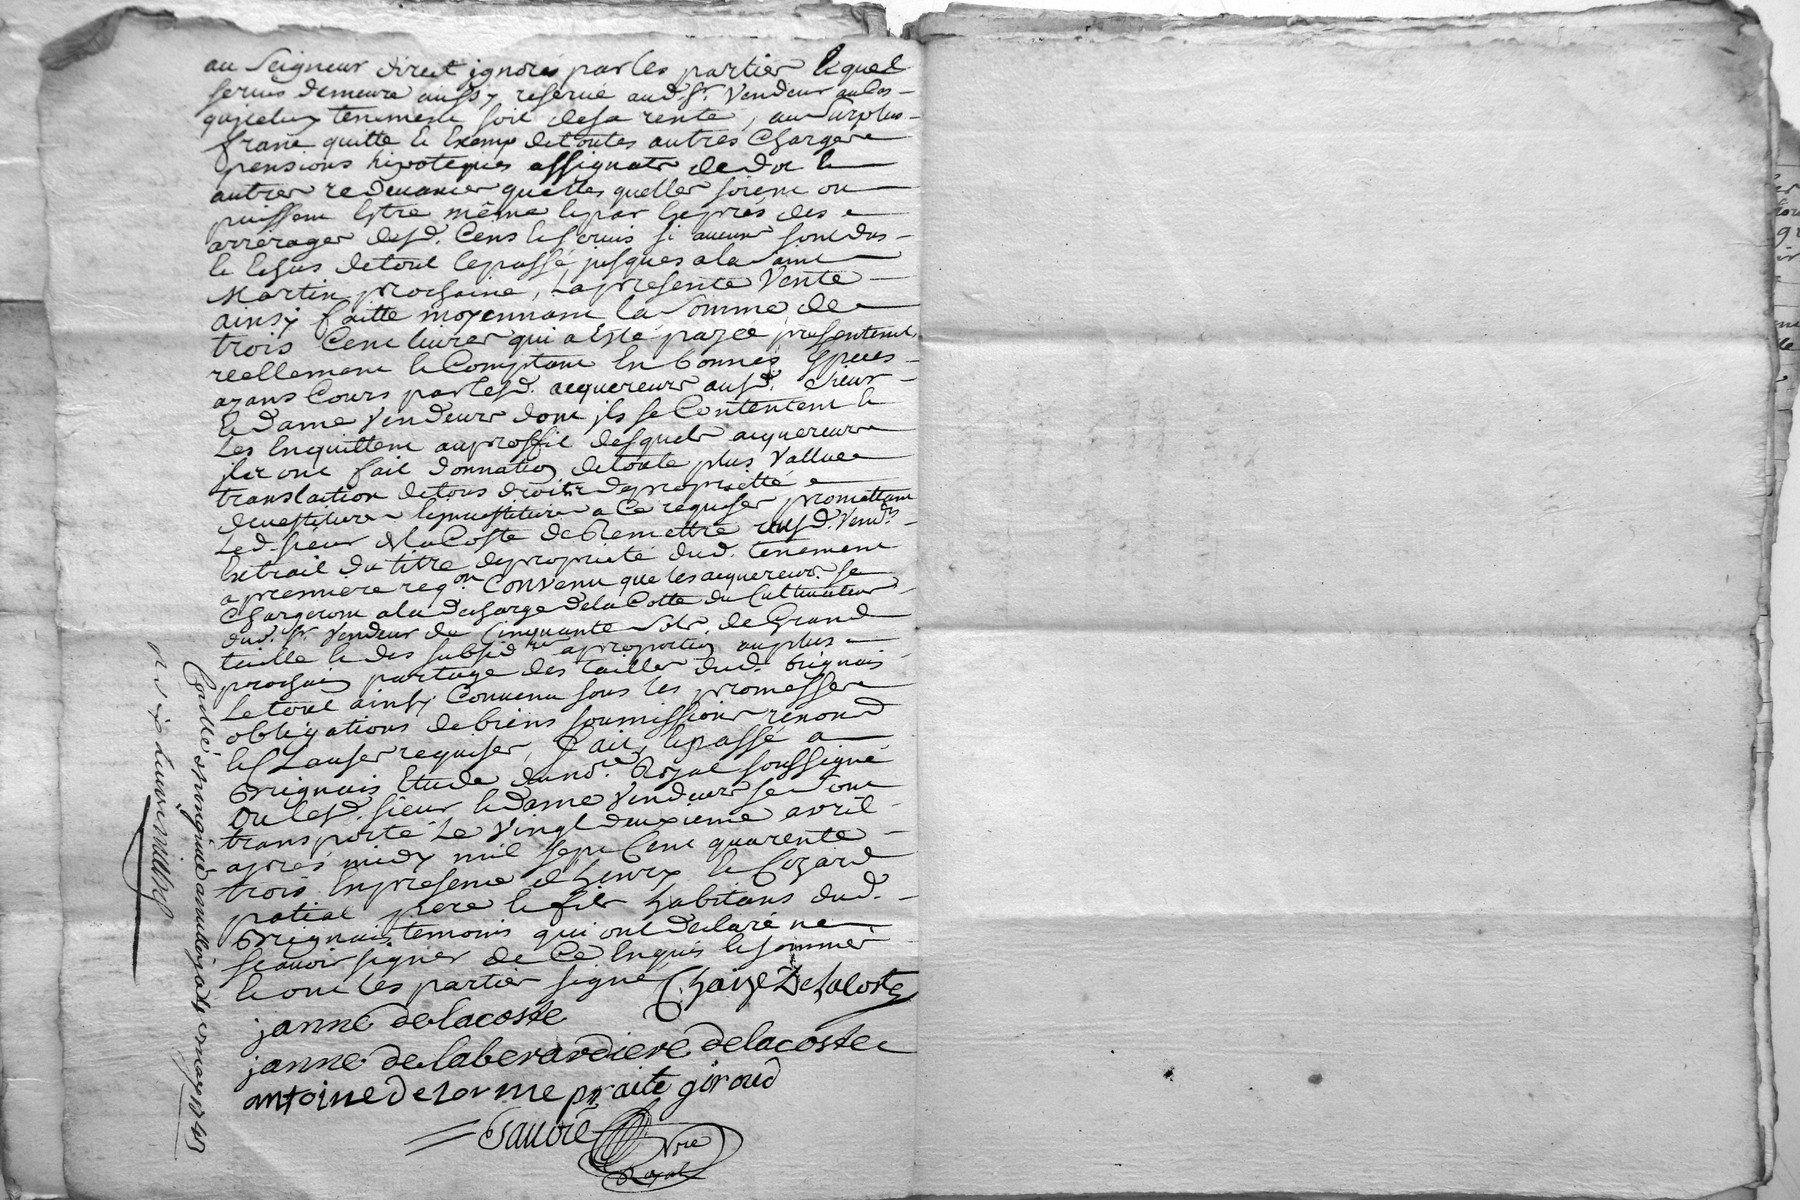 au Seigneur direct ignorés par les parties lequel
servis demeure aussy reservé aud. Sr. Vendeur au cas
quiceluy tenement soit desa rente, au surplus
franc quitte et Exemp detoutes autres Charges
pensions hipoteques assignats de dot et
autres redevances quelles quelles soient ou
puissent Estre même et par Exprés des
arrerages desd. Cens et servis si aucuns sont dus
et Echus detout lepassé jusques ala Saint
Martin prochaine, La presente Vente
ainsy faitte moyennant la Somme de
trois Cent livres qui a Esté payée presentement
reellement et Comptant En bonnes Especes
ayans Cours par lesd. acquereurs ausd. Sieur
et Dame Vendeurs dont ils se Contentent et
Les Enquittent au proffit desquels acquereurs
ils ont fait donnation detoute plus Vallue
translation detous droits deproprietté
devestiture Envestiture a Ce requises promettant
Led. sieur dela Coste de Remettre ausd.
Extrait du titre depropriété dud. tenement
a premiere reqon Convenu que les acquereurs se
Chargeront ala decharge dela Cotte du Cultivateur
dud. Sr. Vendeur de Cinquante Sols de Grand
taille et des subsid aproportion au plus
prochain partage des tailles dud. brignais
Le tout ainsy Convenu sous les promesses
obligations de biens soumissions renond
et Clauses requises, Fait et passé a
Brignais Etude du nore Royal soussigné
Ou lesd. sieur et Dame Vendeurs se sont
transporté Le Vingt deuxieme avril
aprés midy mil sept Cent quarente
trois En presence d'henry et Cozard
patial pere et fils habitans dud.
Brignais temoins qui ont declaré ne
scavoir signer de Ce Enquis et sommés
et ont les parties signé Chaize De Lacoste
janne delacoste
janne delaberardiere delacoste
antoine Delorme praite giroud
Sauvie Nre
Royal
Conllé a brignais 1743